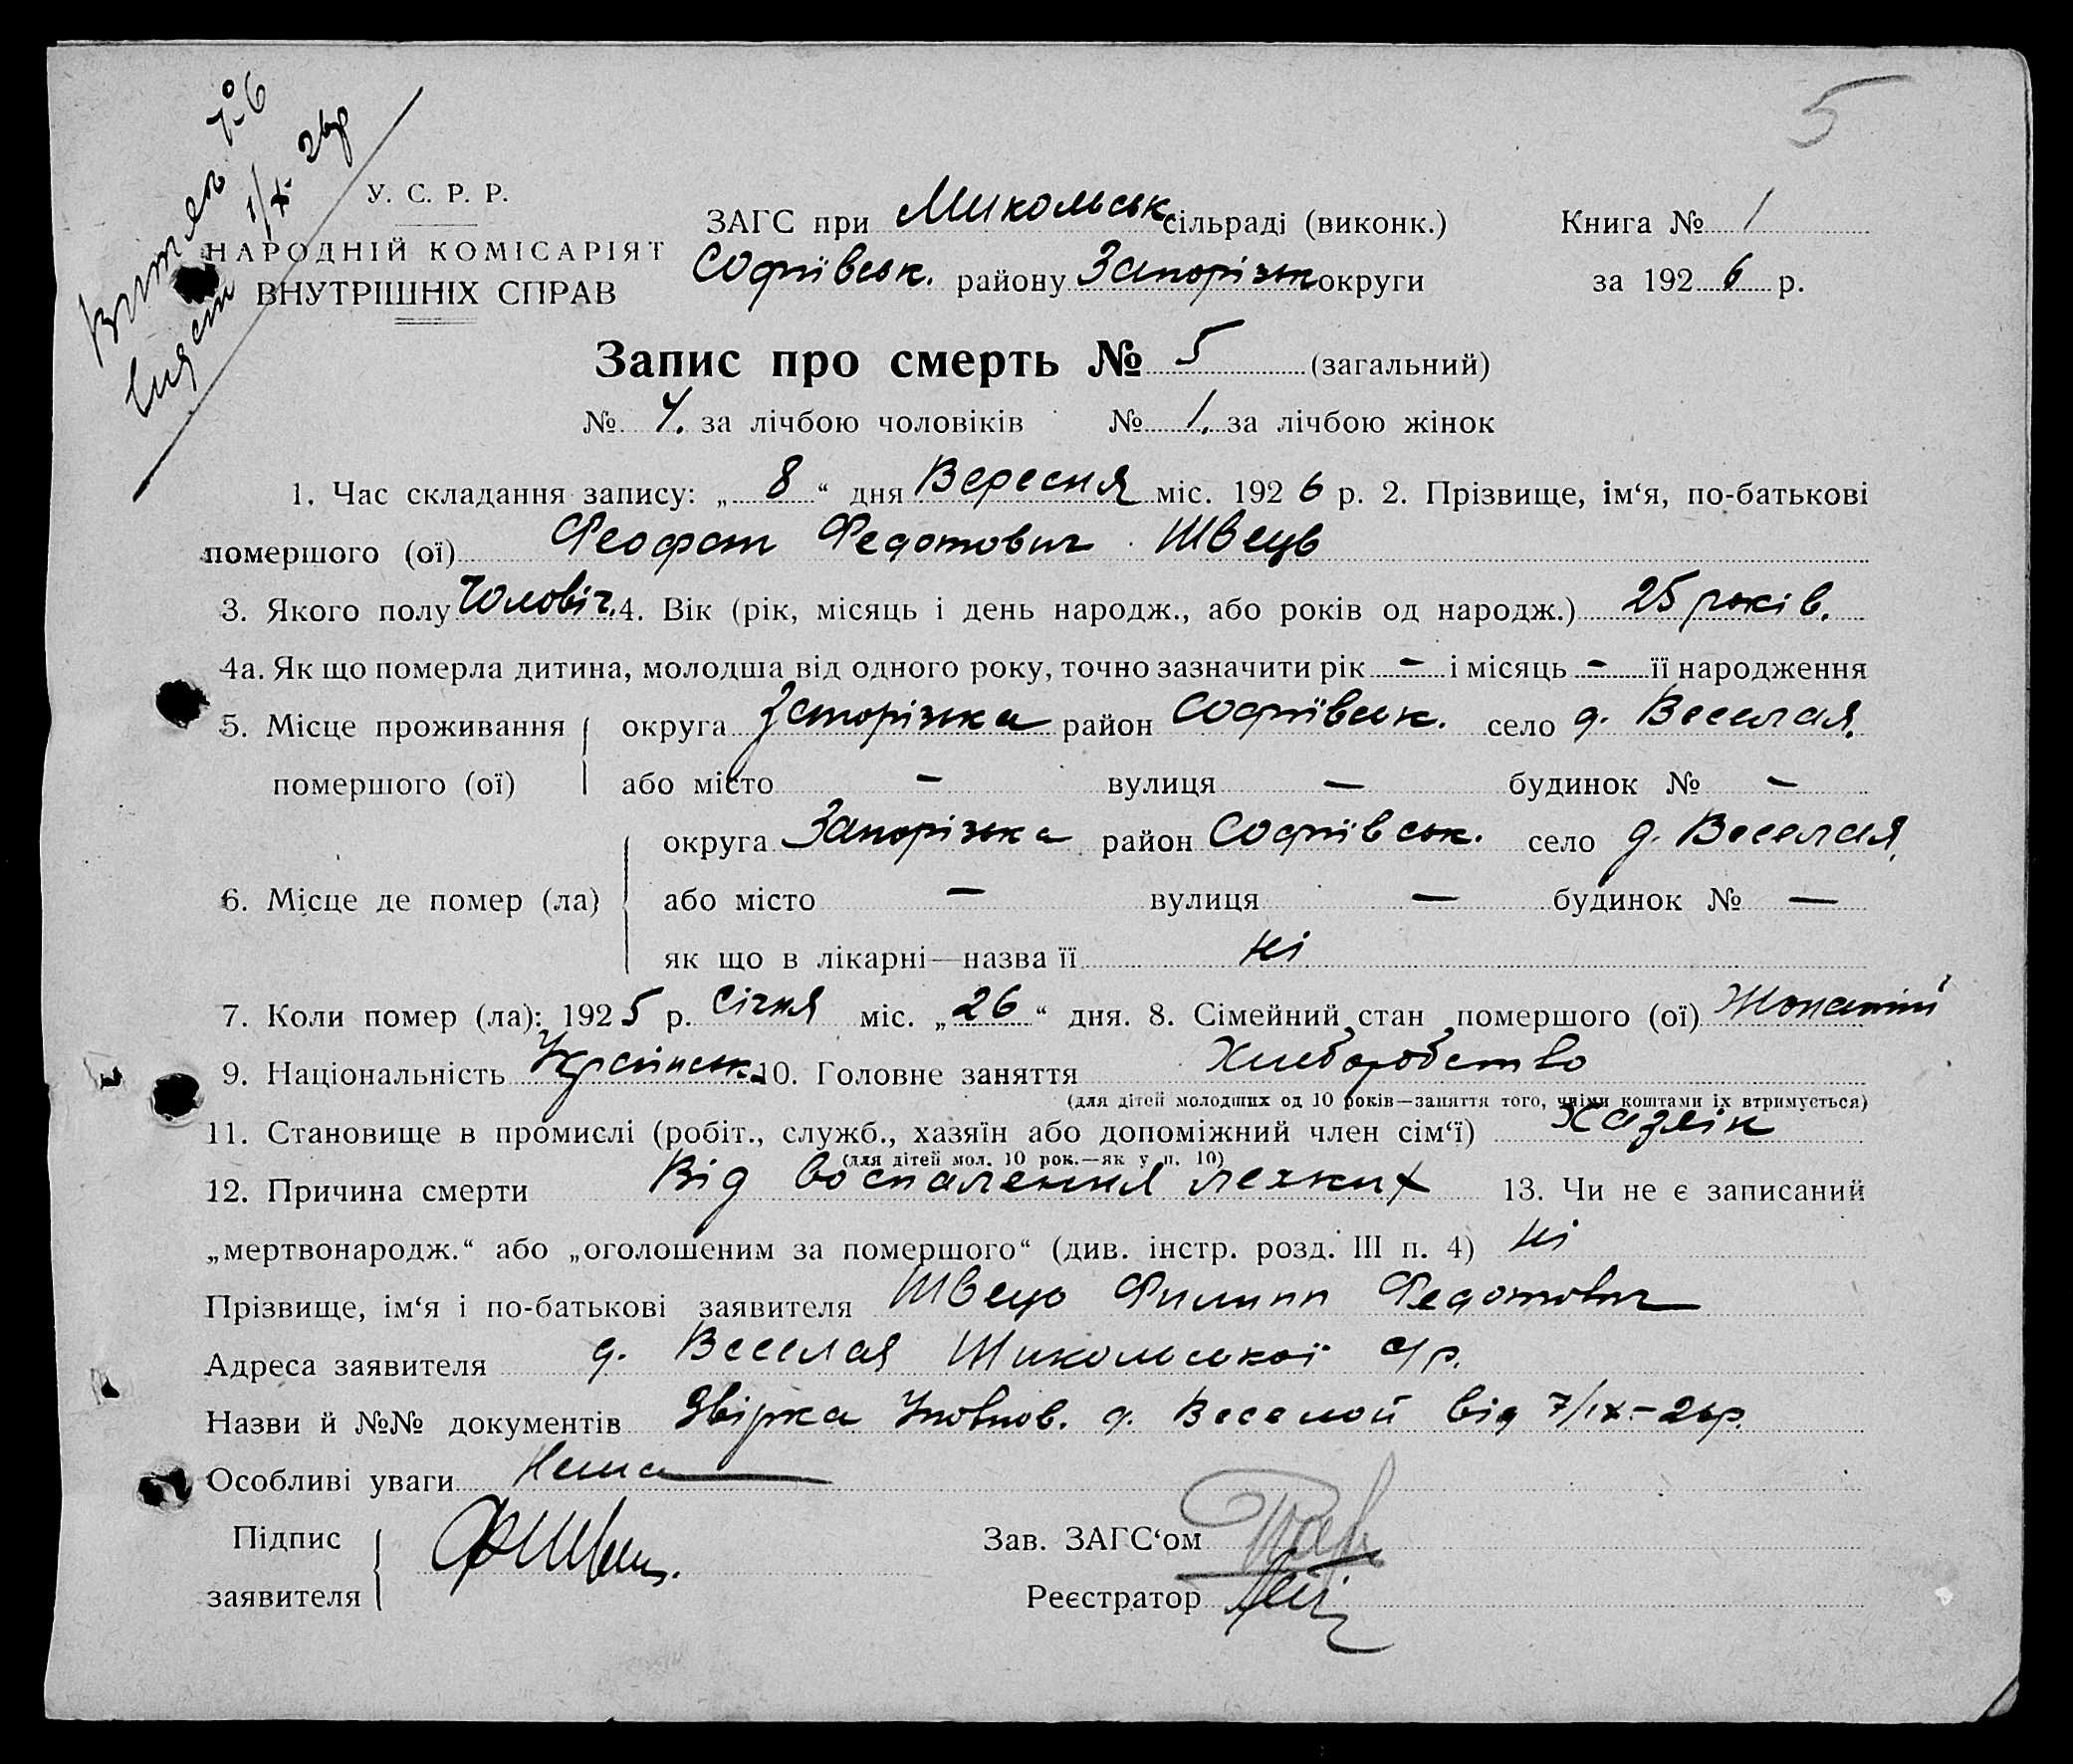 5
Витяг № 6
1/X- 26р
У. С. Р. Р.
НАРОДНІЙ КОМІСАРІЯТ
ВНУТРІШНІХ СПРАВ
ЗАГС при Микольськ. сільраді (виконк.) Книга № 1
Софіївськ. району Запорізьк округи за 192 6 р.
Запис про смерть № 5 (загальний)
№ 4. за лічбою чоловіків № 1. за лічбою жінок
1. Час складання запису: „ 8 “ дня Вересня міс. 192 6 р. 2. Прізвище, ім‘я, по-батькові
помершого (ої) Феофан Федотович Швець
3. Якого полу Чоловіч. 4. Вік (рік, місяць і день народж., або років од народж.) 25 років.
4а. Як що померла дитина, молодша від одного року, точно зазначити рік – і місяць – її народження
5. Місце проживання округа Запорізька район Софіївськ. село д. Веселая.
помершого (ої) або місто – вулиця – будинок № –
округа Запорізька район Софіївськ. село д. Веселая.
6. Місце де помер (ла) або місто – вулиця – будинок № –
як що в лікарні—назва її ні
7. Коли помер (ла): 192 5 р. Січня міс. „ 26 “ дня. 8. Сімейний стан помершого (ої) Жонатий
9. Національність Українськ. 10. Головне заняття Хліборобство
(для дітей молодших од 10 років—заняття того, чиїми коштами їх втримується)
11. Становище в промислі (робіт., служб., хазяїн або допоміжний член сім‘ї) Хазяін
(для дітей мол. 10 рок.—як у п. 10)
12. Причина смерти Від воспаления легких 13. Чи не є записаний
„мертвонародж.“ або „оголошеним за помершого“ (див. інстр. розд. III п. 4) ні
Прізвище, ім‘я і по-батькові заявителя Швець Филипп Федотович
Адреса заявителя д. Веселая Микольської с/р.
Назви й №№ документів Звірка Уповнов. д. Веселой від 7/ІХ.-26р.
Особливі уваги Нема
Підпис
заявителя Ф Швець.
Зав. ЗАГС‘ом
Реєстратор